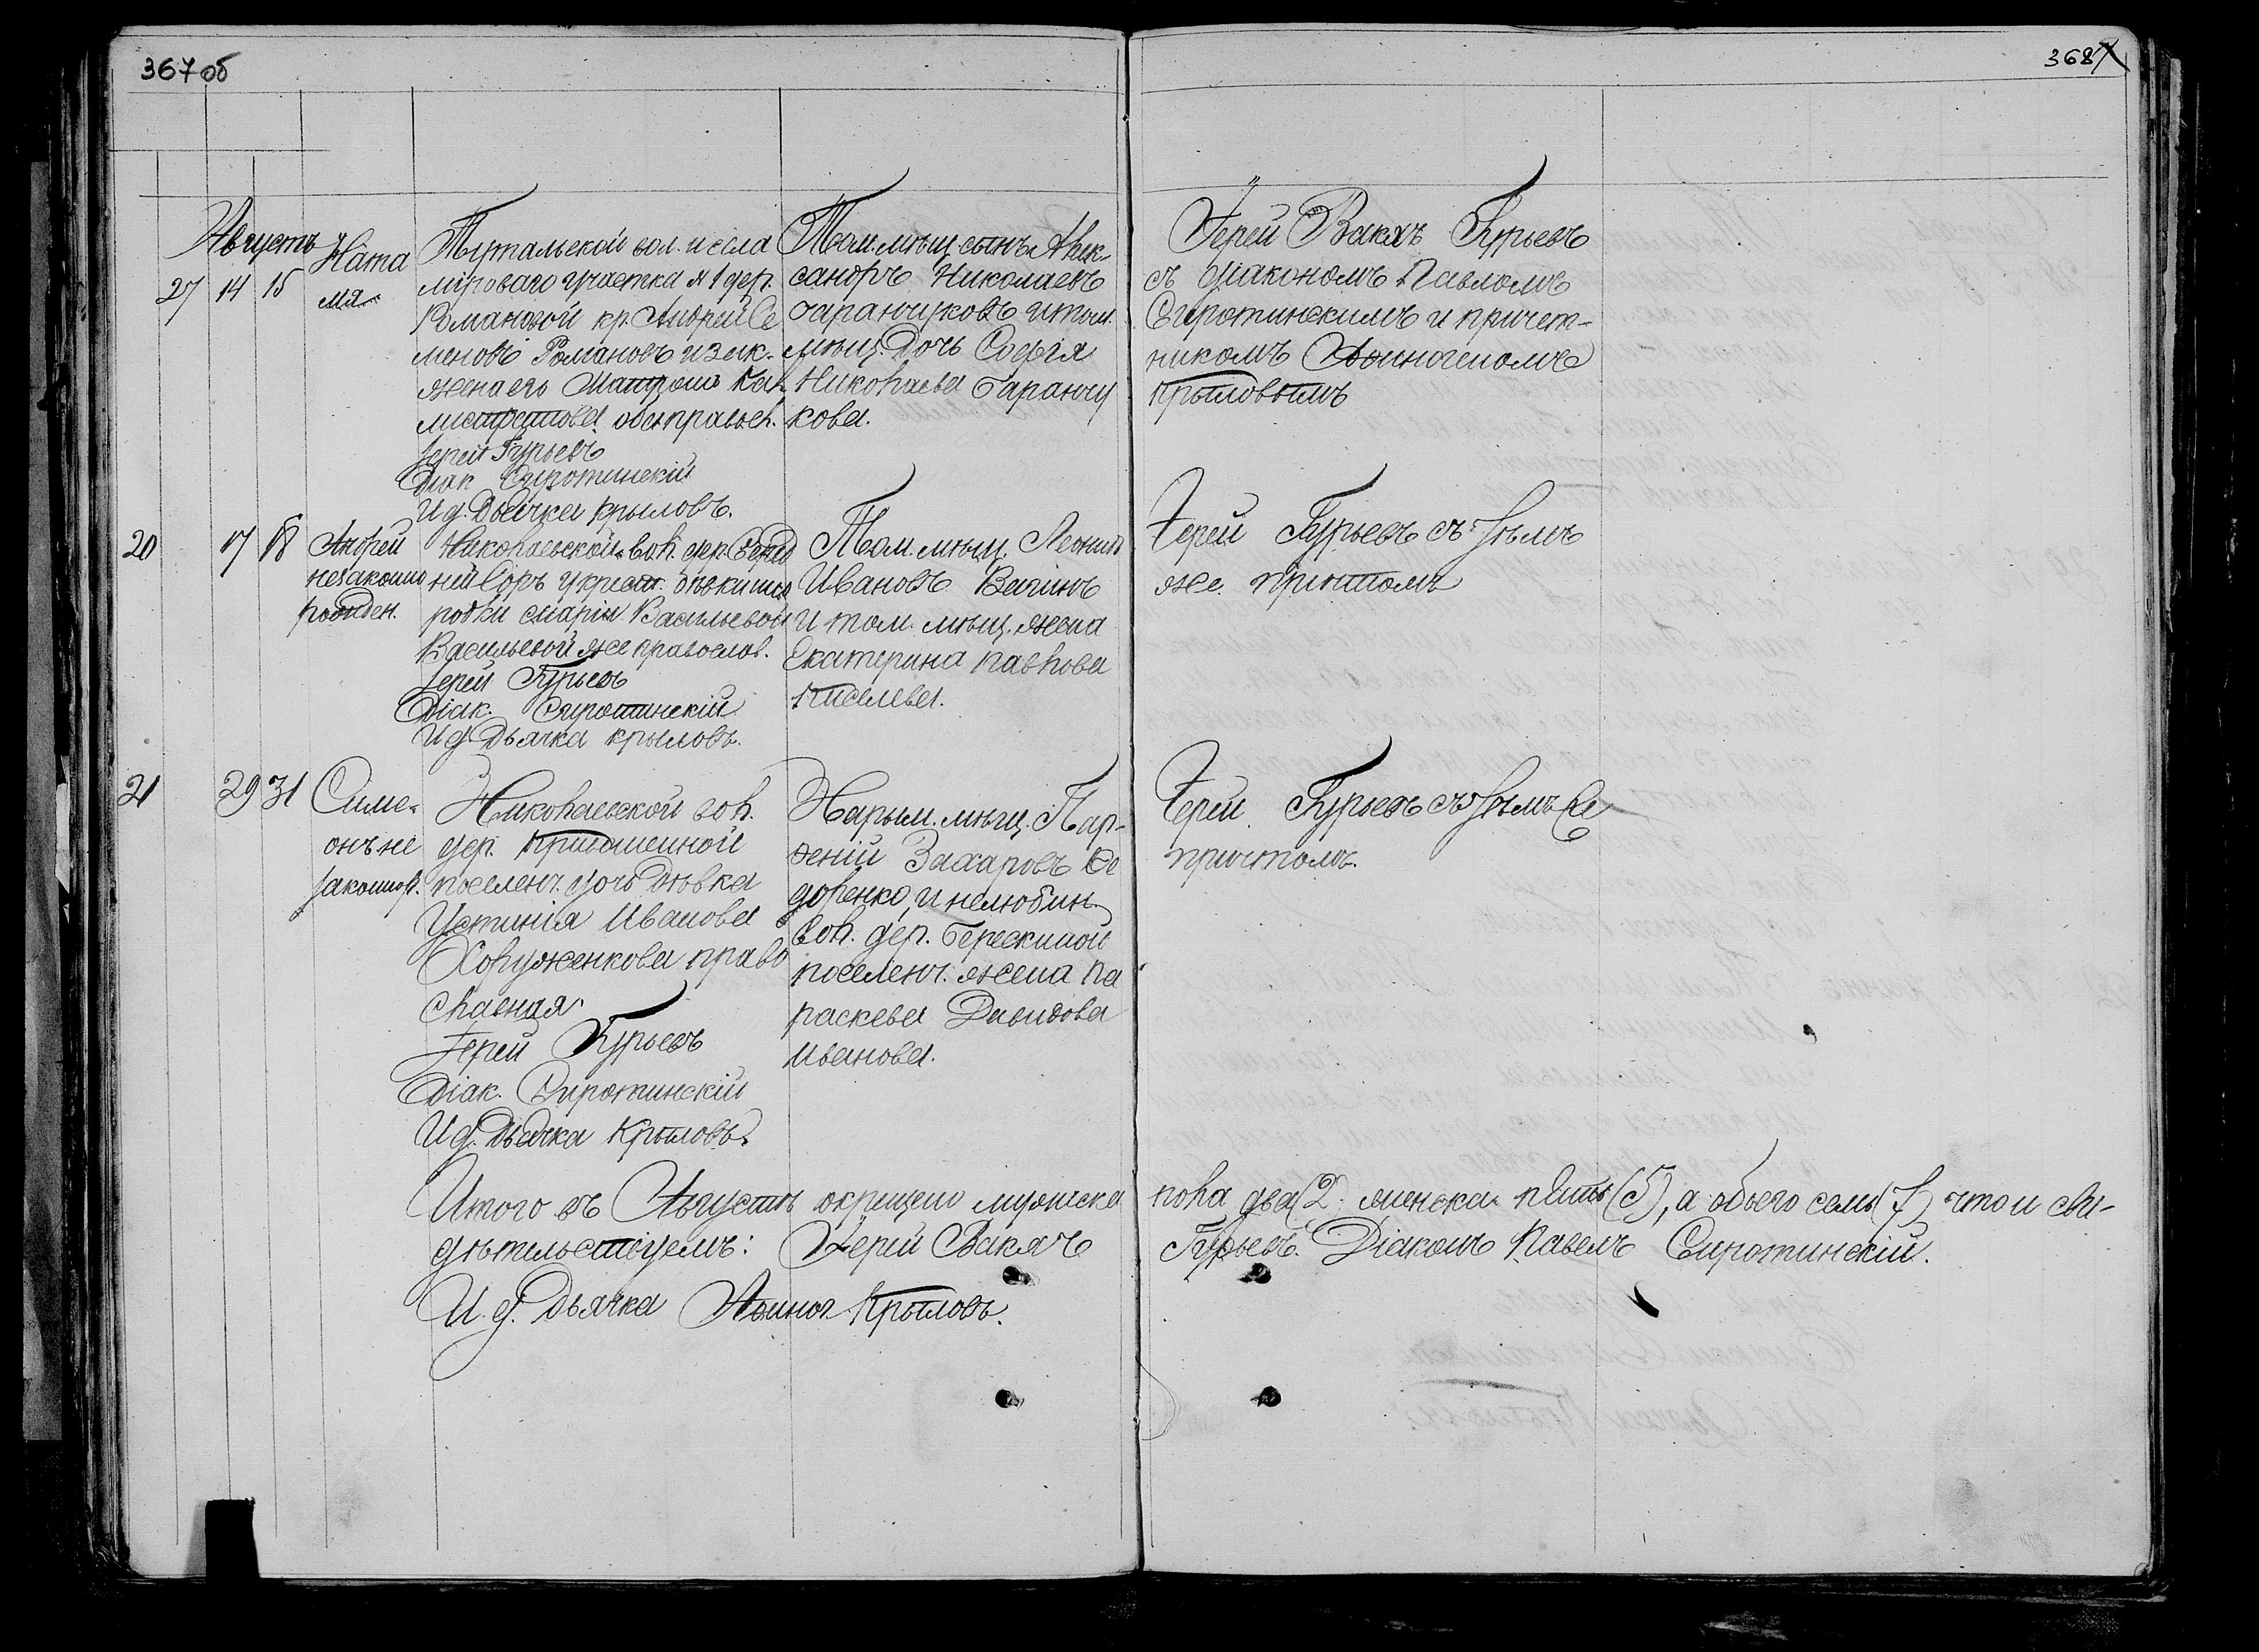 367 об
368
Августъ
27 14 15
Ната
лія
Тутальской вол. и села
мірового участка № 1 дер.
Романовой кр. Андрей Се
меновъ Романовъ и зак.
жена его Матрона Ка
листратова оба правосл.
Іерей Гурьевъ
Діак. Сиротинскій
И д. Дьячка Крыловъ.
Том. мѣщ. сынъ Алек-
сандръ Николаевъ
Гаранчуковъ и том.
мѣщ. Дочь Софія
Николаева Гаранчу
кова.
Іерей Вакхъ Гурьевъ
съ діакономъ Павломъ
Сиротинскимъ и причет-
никомъ Аѳиногеномъ
Крыловымъ
20 17 18
Андрей
незаконно
рожден.
Николаевской вол. дер.
ней Соръ у крест. дѣвки
Маріи Васильевой
Васильевой же православ.
Іерей Гурьевъ
Діак. Сиротинскій
И д. Дьячка Крыловъ.
Том. мѣщ. Леонидъ
Ивановъ Вагинъ
и том. мѣщ. жена
Екатерина Павлова
Киселева.
Іерей Гурьевъ съ тѣмъ
же причтомъ
21 29 31
Симе-
онъ не
законнор.
Николаевской вол.
дер. Кривошеиной
поселенч. дочь дѣвка
Устинія Иванова
Холуженкова право
славная
Іерей Гурьевъ
Діак. Сиротинскій
И д. Дьячка Крыловъ.
Нарым. мѣщ. Пар-
ѳеній Захаровъ Се
доренко, и нелюбин.
вол. дер. Березкиной
поселенч. жена Па
раскева Давидова
Иванова.
Іерей Гурьевъ съ тѣмъ же
причтомъ.
Итого въ Августѣ окрещено мужеска пола два (2) женска пять (5), а обоего семь (7) что и сви-
дѣтельствуемъ: Іерей Вакхъ Гурьевъ. Діаконъ Павелъ Сиротинскій.
И. д. Дьячка Аѳиног. Крыловъ.